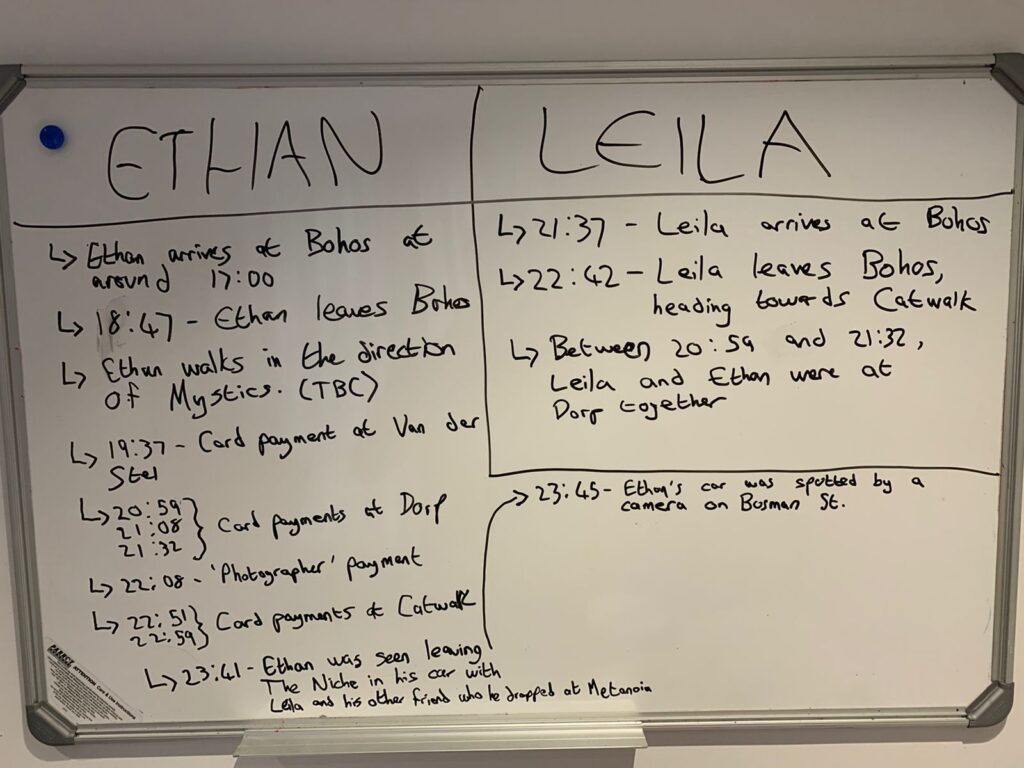 ETHAN
↳ Ethan arrives at Bohos at
around 17:00
↳ 18:47 - Ethan leaves Bohos
↳ Ethan walks in the direction
of Mystics. (TBC)
↳ 19:37 - Card payment at Van der
Stel
↳ 20:59
21:08
21:32
} Card payments at Dorp
↳ 22:08 - 'Photographer' payment
↳ 22:51
22:59
} Card payments at Catwalk
↳ 23:41 - Ethan was seen leaving
The Niche in his car with
Leila and his other friend who he dropped at Metanoia
LEILA
↳ 21:37 - Leila arrives at Bohos
↳ 22:42 - Leila leaves Bohos,
heading towards Catwalk
↳ Between 20:59 and 21:32,
Leila and Ethan were at
Dorp together
→ 23:45 - Ethan's car was spotted by a
camera on Bosman St.
PARROT
ATTENTION